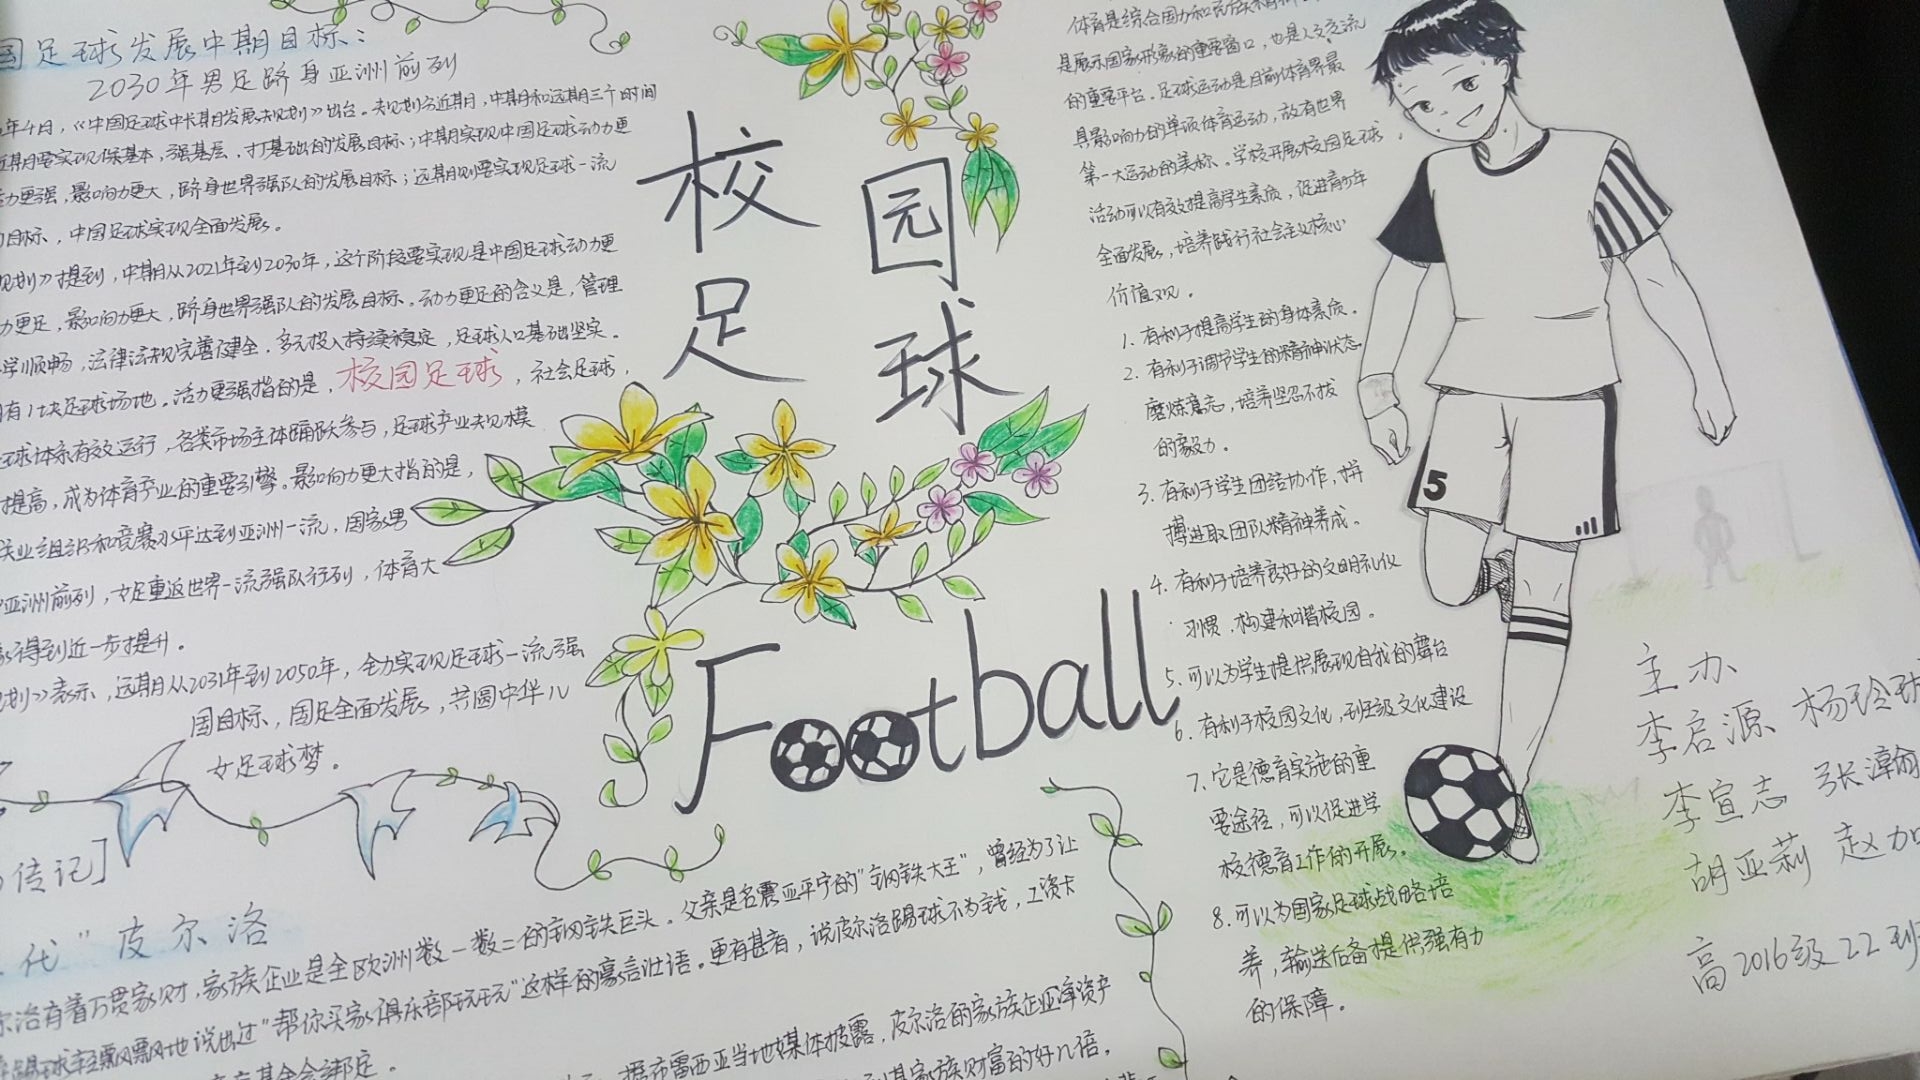 国足球发展中期目标：
2030年男足跻身亚洲前列
年4月，《中国足球中长期发展规划》出台。规划分近期，中期和远期三个时间
近期要实现保基本，强基层，打基础的发展目标；中期实现中国足球动力更
力更强，影响力更大，跻身世界强队的发展目标；远期则要实现足球一流
目标，中国足球实现全面发展。
规划》提到，中期从2021年到2030年，这个阶段要实现是中国足球动力更
力更足，影响力更大，跻身世界强队的发展目标。动力更足的含义是，管理
学顺畅，法律法规完善健全，多元投入持续稳定，足球人口基础坚实。
有1块足球场地。活力更强指的是，校园足球，社会足球，
球体系有效运行，各类市场主体踊跃参与，足球产业规模
提高，成为体育产业的重要引擎。影响力更大指的是，
业组织和竞赛水平达到亚洲一流，国家男
亚洲前列，女足重返世界一流强队行列，体育大
得到近一步提升。
规划》表示，远期从2031年到2050年，全力实现足球一流强
国目标，国足全面发展，共圆中华儿
女足球梦。
校园
足球
Football
传记]
代”皮尔洛
尔洛有着万贯家财，家族企业是全欧洲数一数二的钢铁巨头。父亲是名震亚平宁的“钢铁大王”，曾经为了让
踢球轻飘飘地说出过“帮你买家俱乐部玩玩”这样的豪言壮语。更有甚者，说皮尔洛踢球不为钱，工资卡
基金会绑定。
据布雷西亚当地媒体披露，皮尔洛的家族企业净资产
其家族财富的好几倍，
体育是综合国力和
是展示国家形象的重要窗口，也是人文交流
的重要平台。足球运动是目前体育界最
具影响力的单项体育运动，故有世界
第一大运动的美称。学校开展校园足球
活动可以有效提高学生素质，促进青少年
全面发展，培养践行社会主义核心
价值观。
1. 有利于提高学生的身体素质。
2. 有利于调节学生的精神状态，
磨炼意志，培养坚忍不拔
的毅力。
3. 有利于学生团结协作，拼
搏进取团队精神养成。
4. 有利于培养良好的文明礼仪
习惯，构建和谐校园。
5. 可以为学生提供展现自我的舞台
6. 有利于校园文化，班级文化建设
7. 它是德育实施的重
要途径，可以促进学
校德育工作的开展。
8. 可以为国家足球战略培
养，输送后备提供强有力
的保障。
5
主办
李启源 杨玲
李宣志 张漳
胡亚莉 赵加
高2016级22班